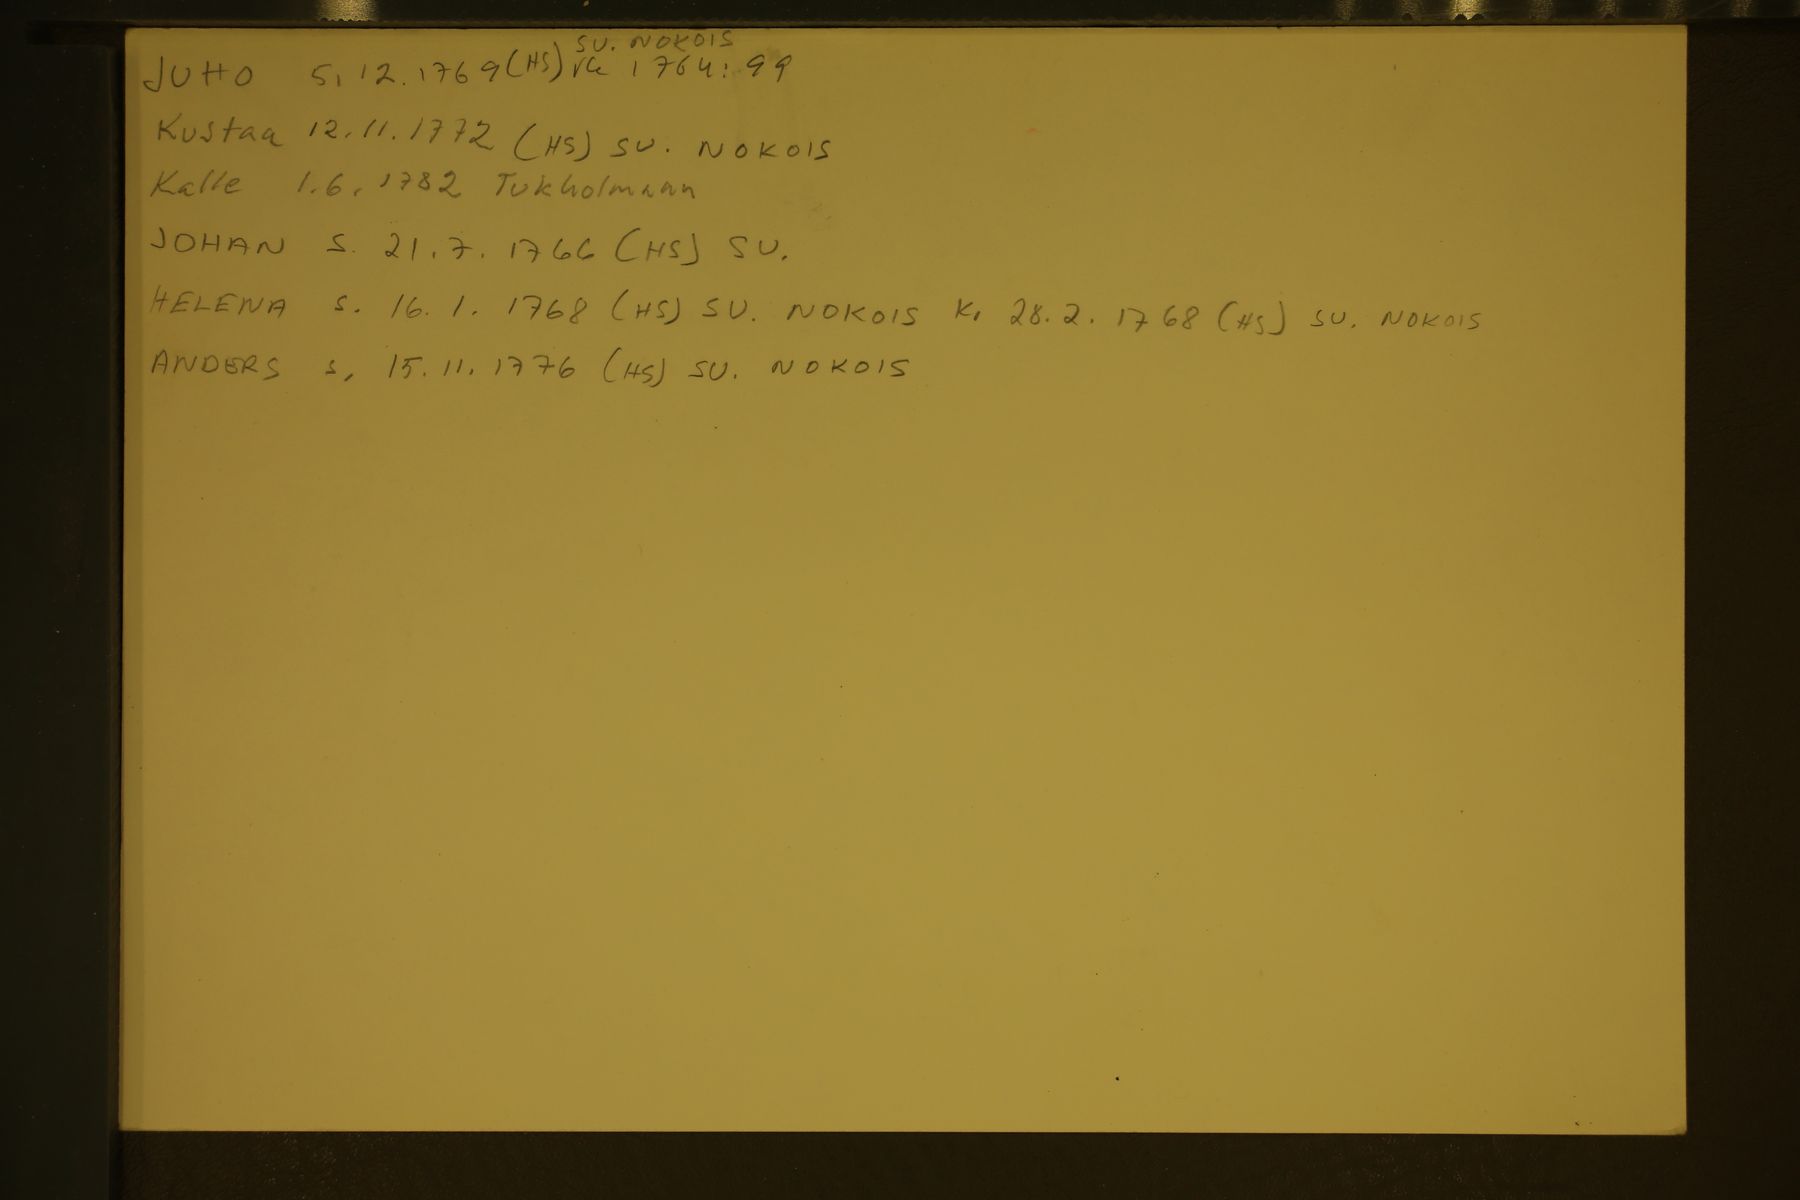 SU. NOKOIS
JUHO 5.12.1769 (HS) rk 1764: 99
Kustaa 12.11.1772 (HS) SU. NOKOIS
Kalle 1.6.1782 Tukholmaan
JOHAN S. 21.7.1766 (HS) SU.
HELENA S. 16.1.1768 (HS) SU. NOKOIS K. 28.2.1768 (HS) SU. NOKOIS
ANDERS S. 15.11.1776 (HS) SU. NOKOIS